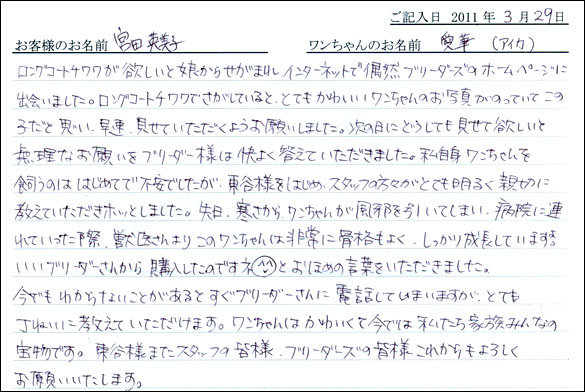 ご記入日 2011年 3月 29日
お客様のお名前 宮田 英美子 ワンちゃんのお名前 愛華 (アイカ)
ロングコートチワワが欲しいと娘からせがまれ インターネットで偶然ブリーダーズのホームページに
出会いました。ロングコートチワワでさがしていると、とてもかわいいワンちゃんのお写真がのっていて この
子だと思い、早速、見せていただくようお願いしました。次の日にどうしても見せて欲しいと
無理なお願いをブリーダー様は快よく答えていただきました。私自身ワンちゃんを
飼うのは はじめてで不安でしたが、東谷様をはじめ、スタッフの方々がとても明るく親切に
教えていただきホッとしました。先日、寒さから、ワンちゃんが風邪を引いてしまい、病院に連
れていった際、獣医さんより このワンちゃんは非常に骨格もよく、しっかり成長しています。
いいブリーダーさんから購入したのですネ とおほめの言葉をいただきました。
今でもわからないことがあるとすぐブリーダーさんに電話してしまいますが、とても
ていねいに教えていただけます。ワンちゃんはかわいくて今では私たち家族みんなの
宝物です。東谷様またスタッフの皆様、ブリーダーズの皆様これからもよろしく
お願いいたします。